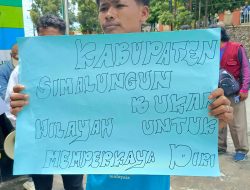 KABUPATEN
SIMALUNGUN
BUKAN
WILAYAH UNTUK
MEMPERKAYA DIRI